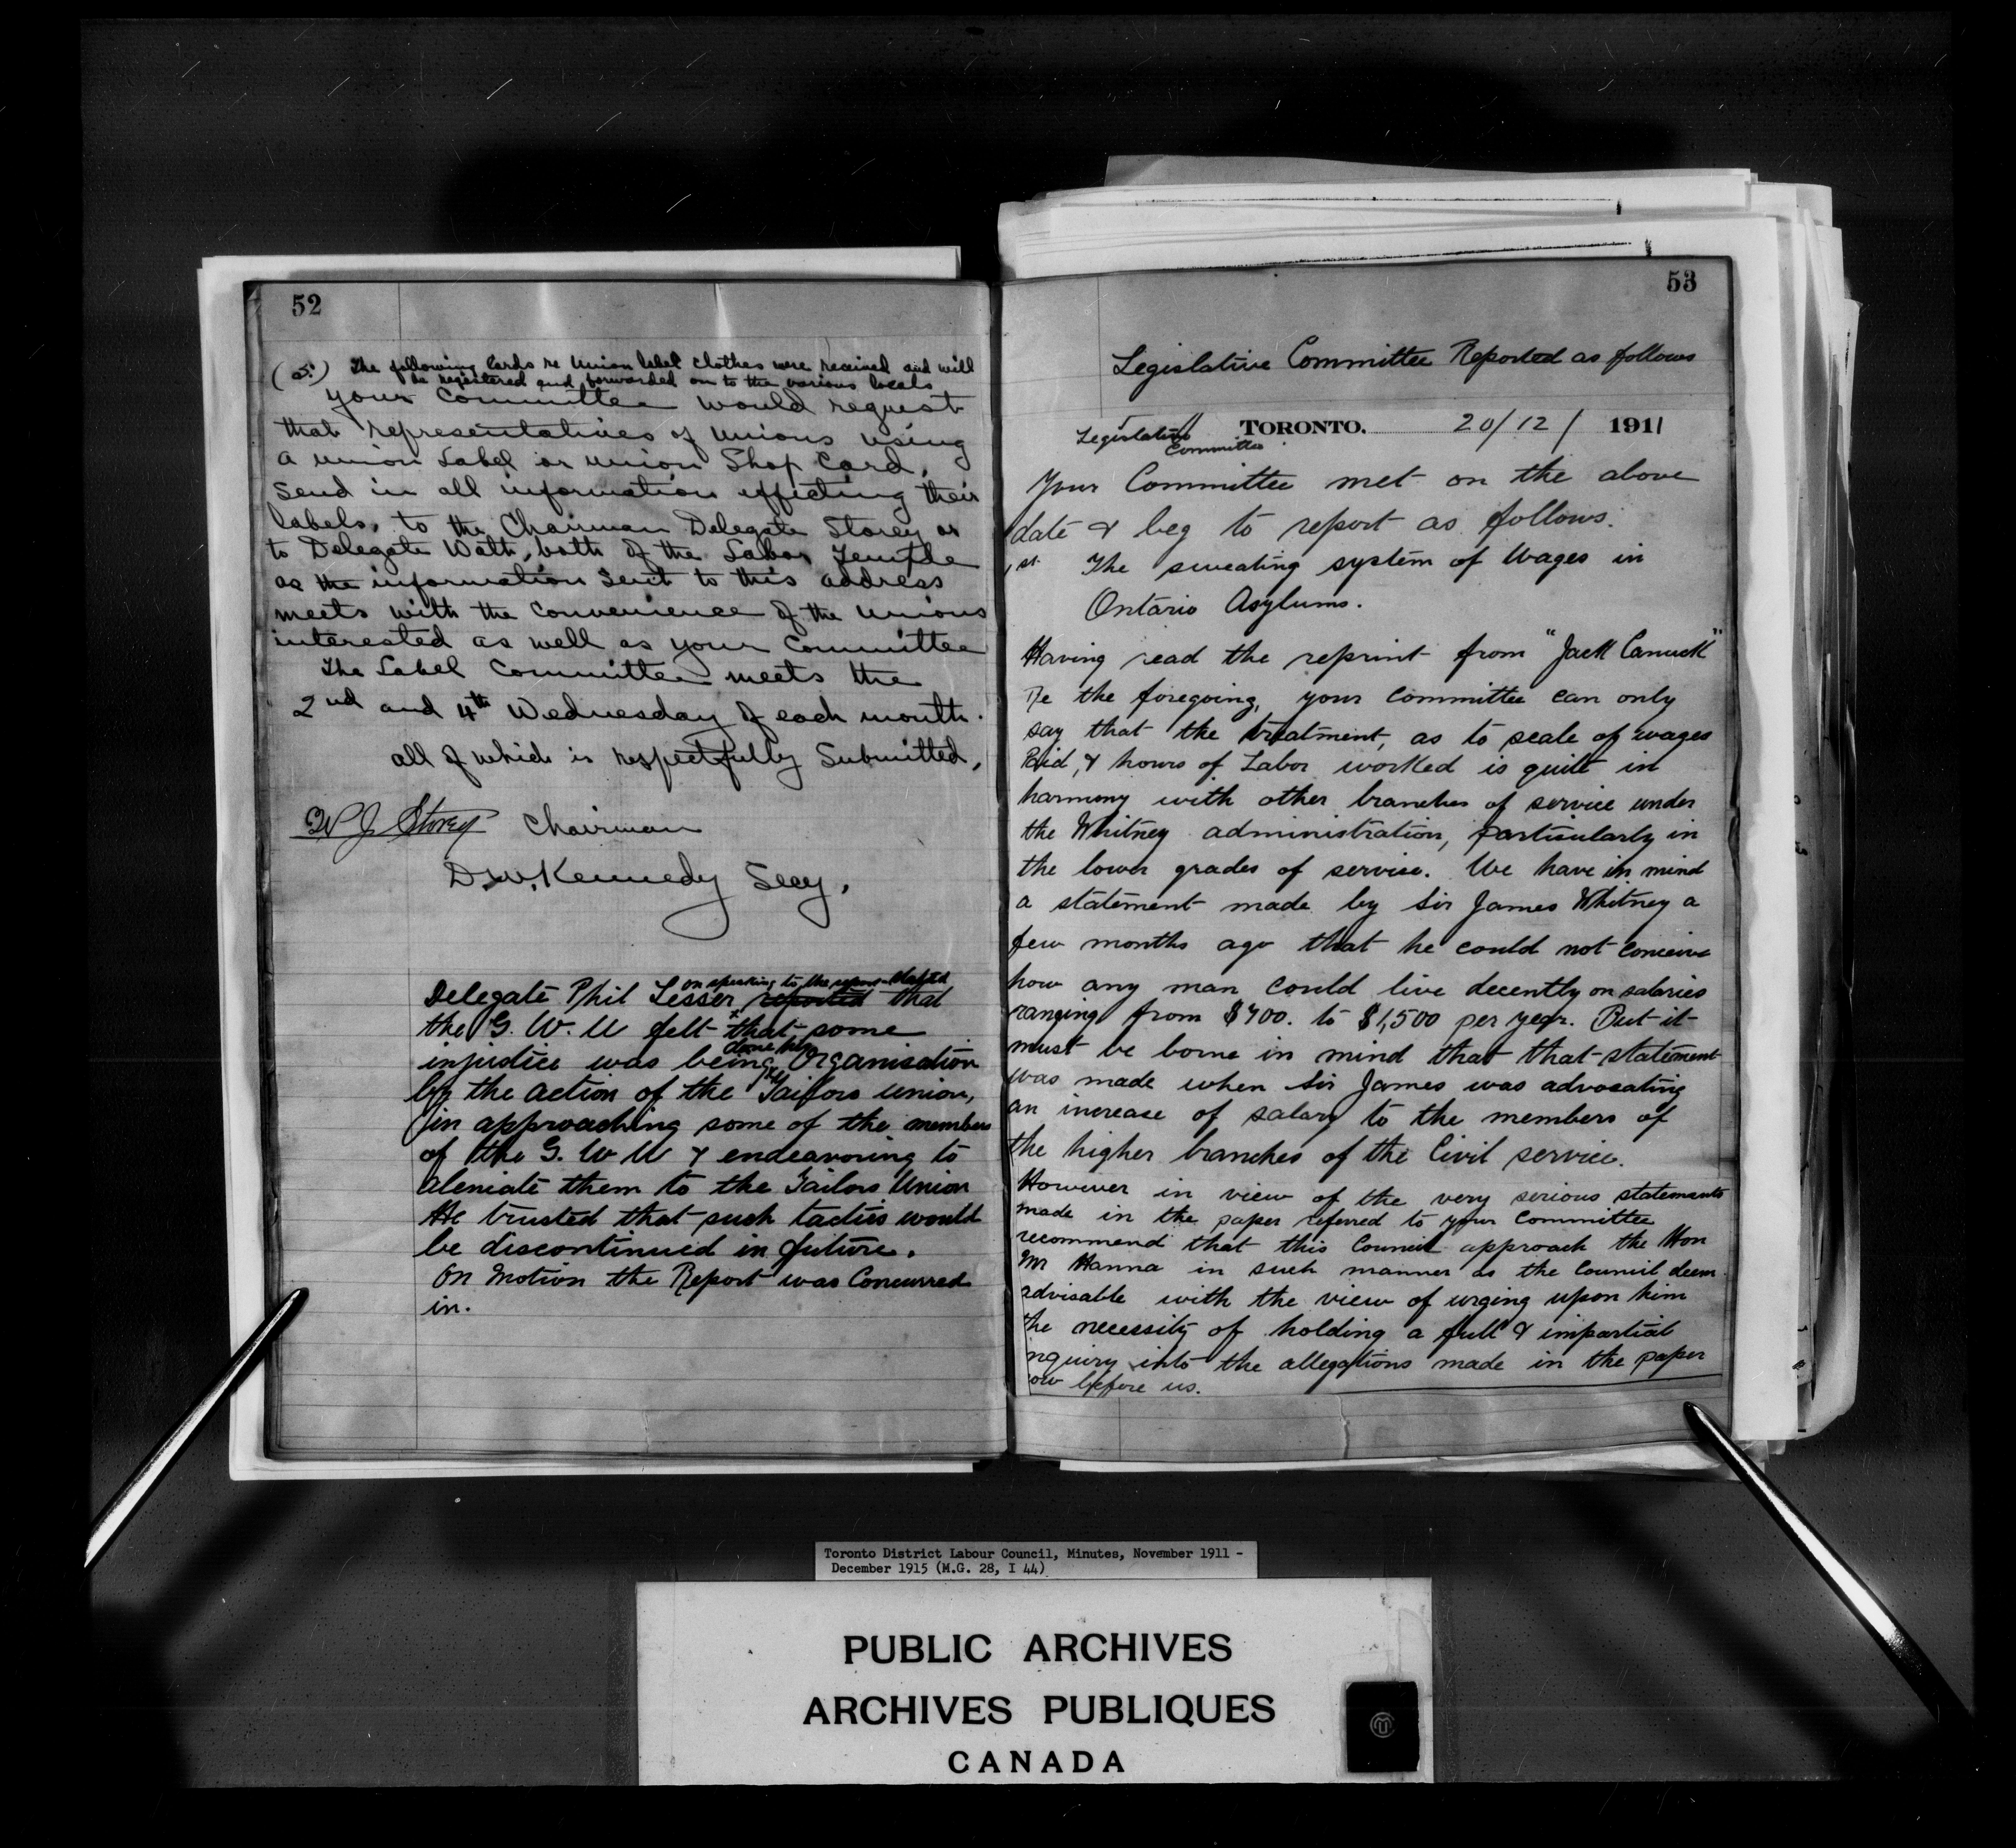 52
(5.) The following Cards re Union label clothes were received and will
be registered and forwarded on to the various locals
your Committee would request
that representatives of unions using
a union Label or union Shop Card,
send in all information effecting their
labels, to the Chairman Delegate Storey or
to Delegate Watt, both of the Labor Temple
as the information sent to this address
meets with the convenience of the unions
interested as well as your Committee
The Label Committee meets the
2nd and 4th Wednesday of each month.
all of which is respectfully Submitted,
W J Storey Chairman
D.W. Kennedy Secy.
on speaking to the report stated
Delegate Phil Lesser reported that
the G. W. U felt that some
done their
injustice was being Organisation
by the action of the Tailors union,
in approaching some of the members
of the G. W U & endeavoring to
aleniate them to the Tailors Union
He trusted that such tactics would
be discontinued in future.
On Motion the Report was Concurred
in.
53
Legislative Committee Reported as follows
TORONTO. 20/12/ 1911
Legislative
Committee
Your Committee met on the above
date & beg to report as follows.
1st. The sweating system of Wages in
Ontario Asylums.
Having read the reprint from "Jack Canuck"
Re the foregoing, your Committee can only
say that the treatment, as to scale of wages
Paid, & hours of Labor worked is quite in
harmony with other branches of service under
the Whitney administration, particularly in
the lower grades of service. We have in mind
a statement made by Sir James Whitney a
few months ago that he could not conceive
how any man could live decently on salaries
ranging from $700. to $1,500 per year. But it
must be borne in mind that that statement
was made when Sir James was advocating
an increase of salary to the members of
the higher branches of the Civil service.
However in view of the very serious statements
made in the paper referred to your Committee
recommend that this Council approach the Hon
Mr Hanna in such manner as the Council deem
advisable with the view of urging upon him
the necessity of holding a full & impartial
nquiry into the allegations made in the paper
ow before us.
Toronto District Labour Council, Minutes, November 1911 -
December 1915 (M.G. 28, I 44)
PUBLIC ARCHIVES
ARCHIVES PUBLIQUES
CANADA